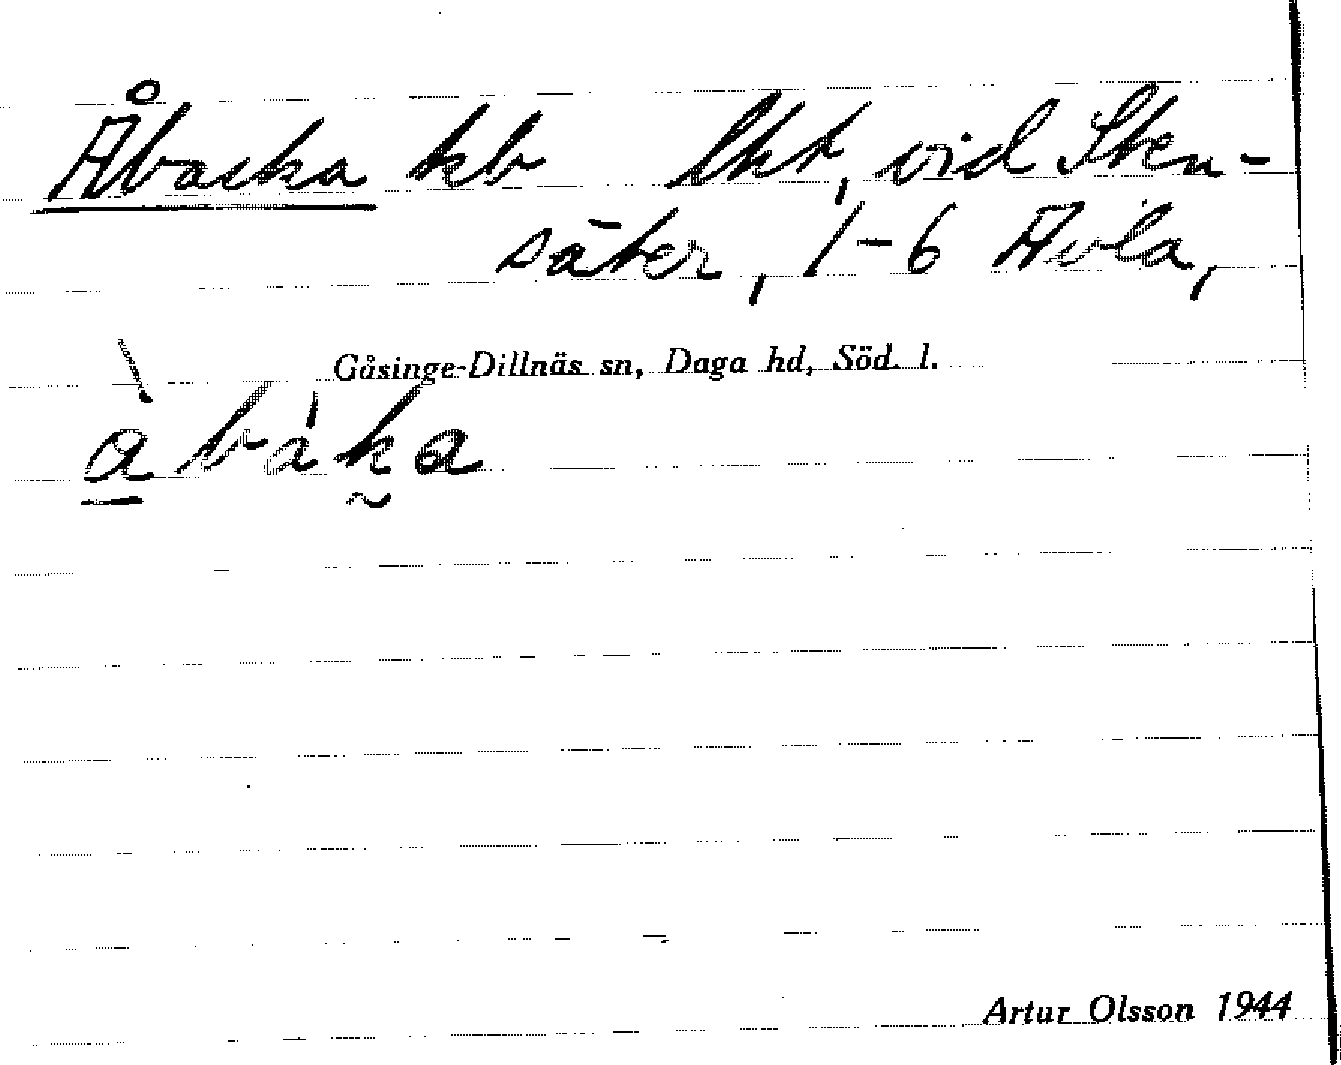 Åbacka kb lht, vid Sten-
säter, 1-6 Avla,
Gåsinge-Dillnäs sn, Daga hd, Söd. l.
Artur Olsson 1944